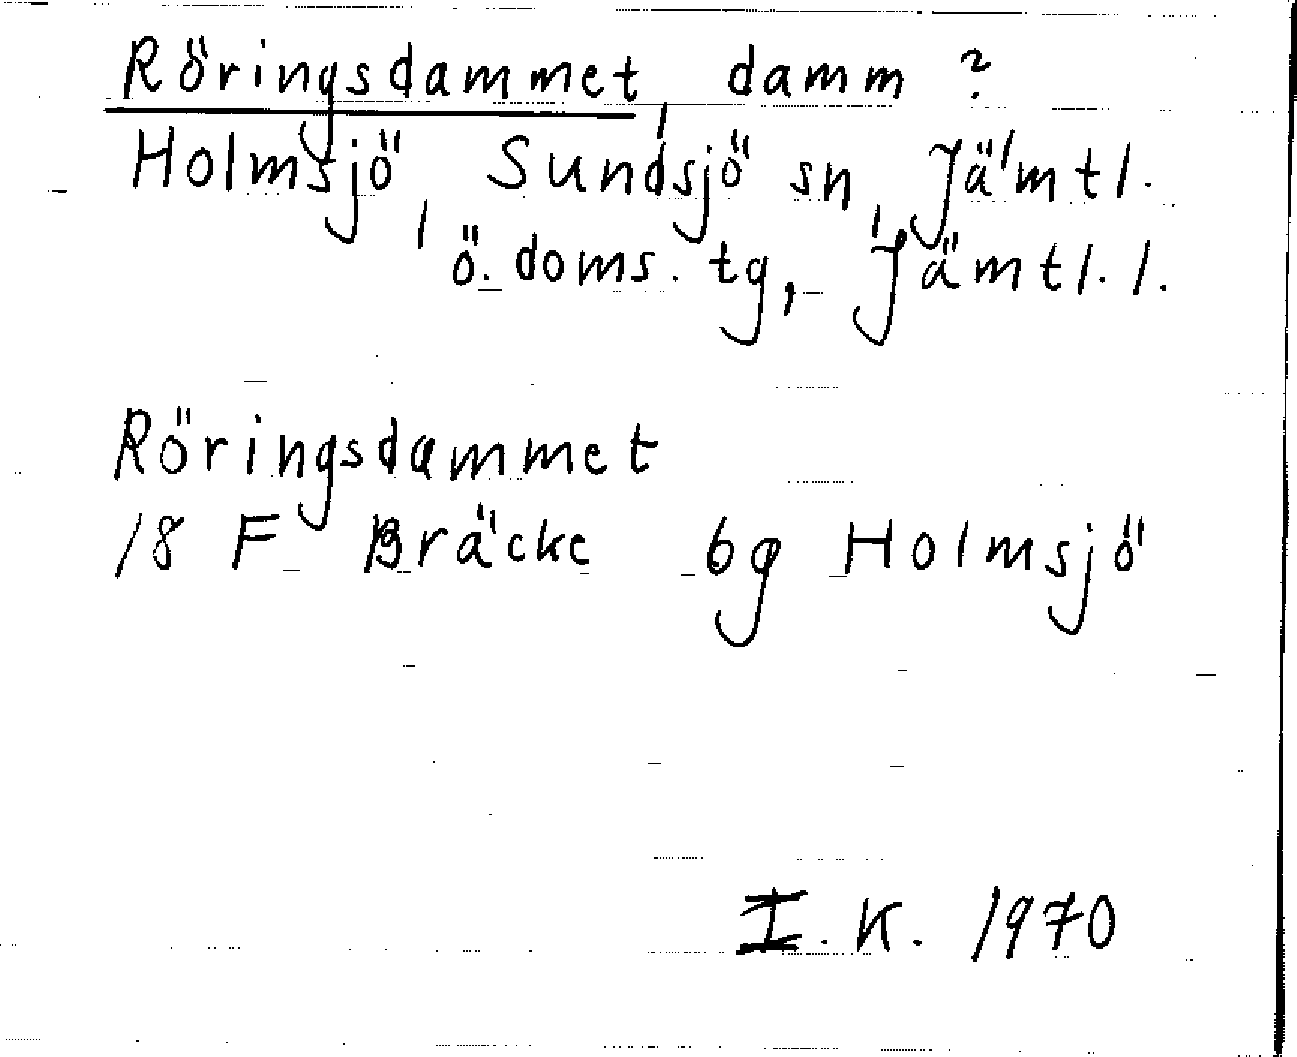 Röringsdammet, damm ?
Holmsjö, Sundsjö sn, Jämtl.
ö. doms. tg, Jämtl. l.
Röringsdammet
18 F Bräcke 6g Holmsjö
I. K. 1970